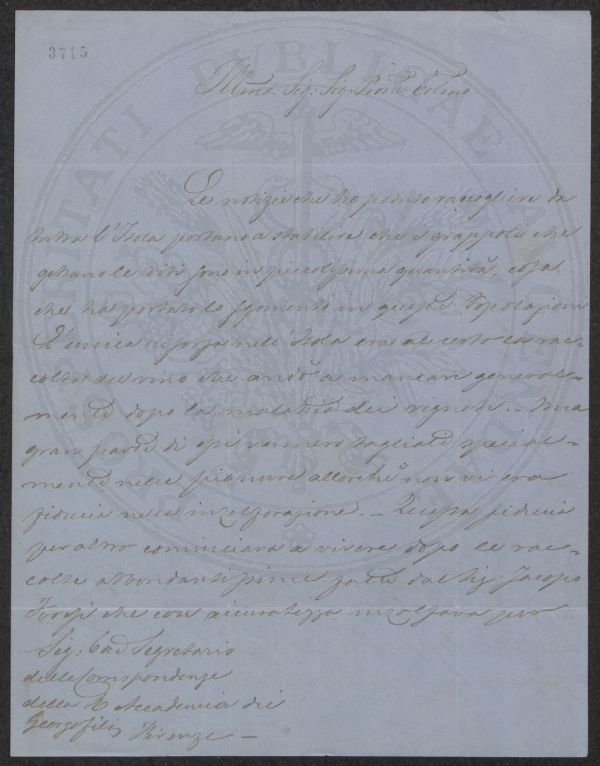 3715
PROSPERITATI PUBLICAE AUGENDAE
Illmo: Sig: Sig: Prone Colmo
Le notizie che ho potuto raccogliere da
tutta l'Isola portano a stabilire che i grappoli che
gettano le viti sono in piccolissima quantità, cosa
che ha portato lo sgomento in queste Popolazioni
L'unica risorsa nell'Isola era al certo la rac=
colta del vino che andò a mancare general=
mente dopo la malattia dei vigneti. - Una
gran parte di essi vennero tagliati special=
mente nelle pianure allorchè non vi era
fiducia nella inzolforazione. - Questa fiducia
per altro cominciava a vivere dopo le rac=
colte abbondantissime fatte dal Sig: Jacopo
Foresi che con accuratezza inzolfava per
Sig: Cav Segretario
delle Corrispondenze
della R Accademia dei
Georgofili Firenze -